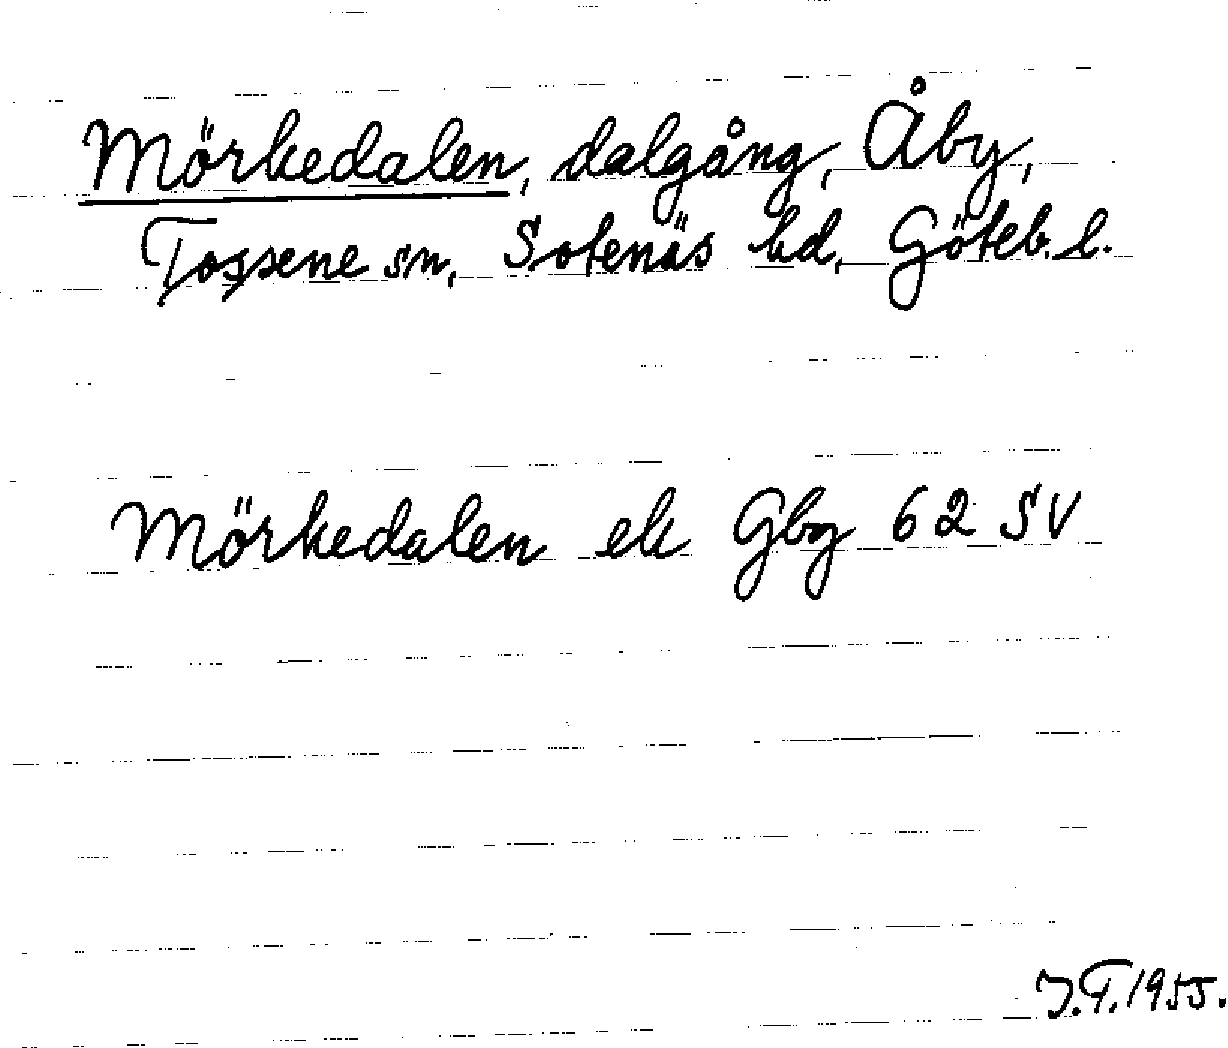 Mörkedalen, dalgång, Åby,
Tossene sn, Sotenäs hd, Göteb. l.
Mörkedalen ek Gbg 62 SV
J.T. 1955.